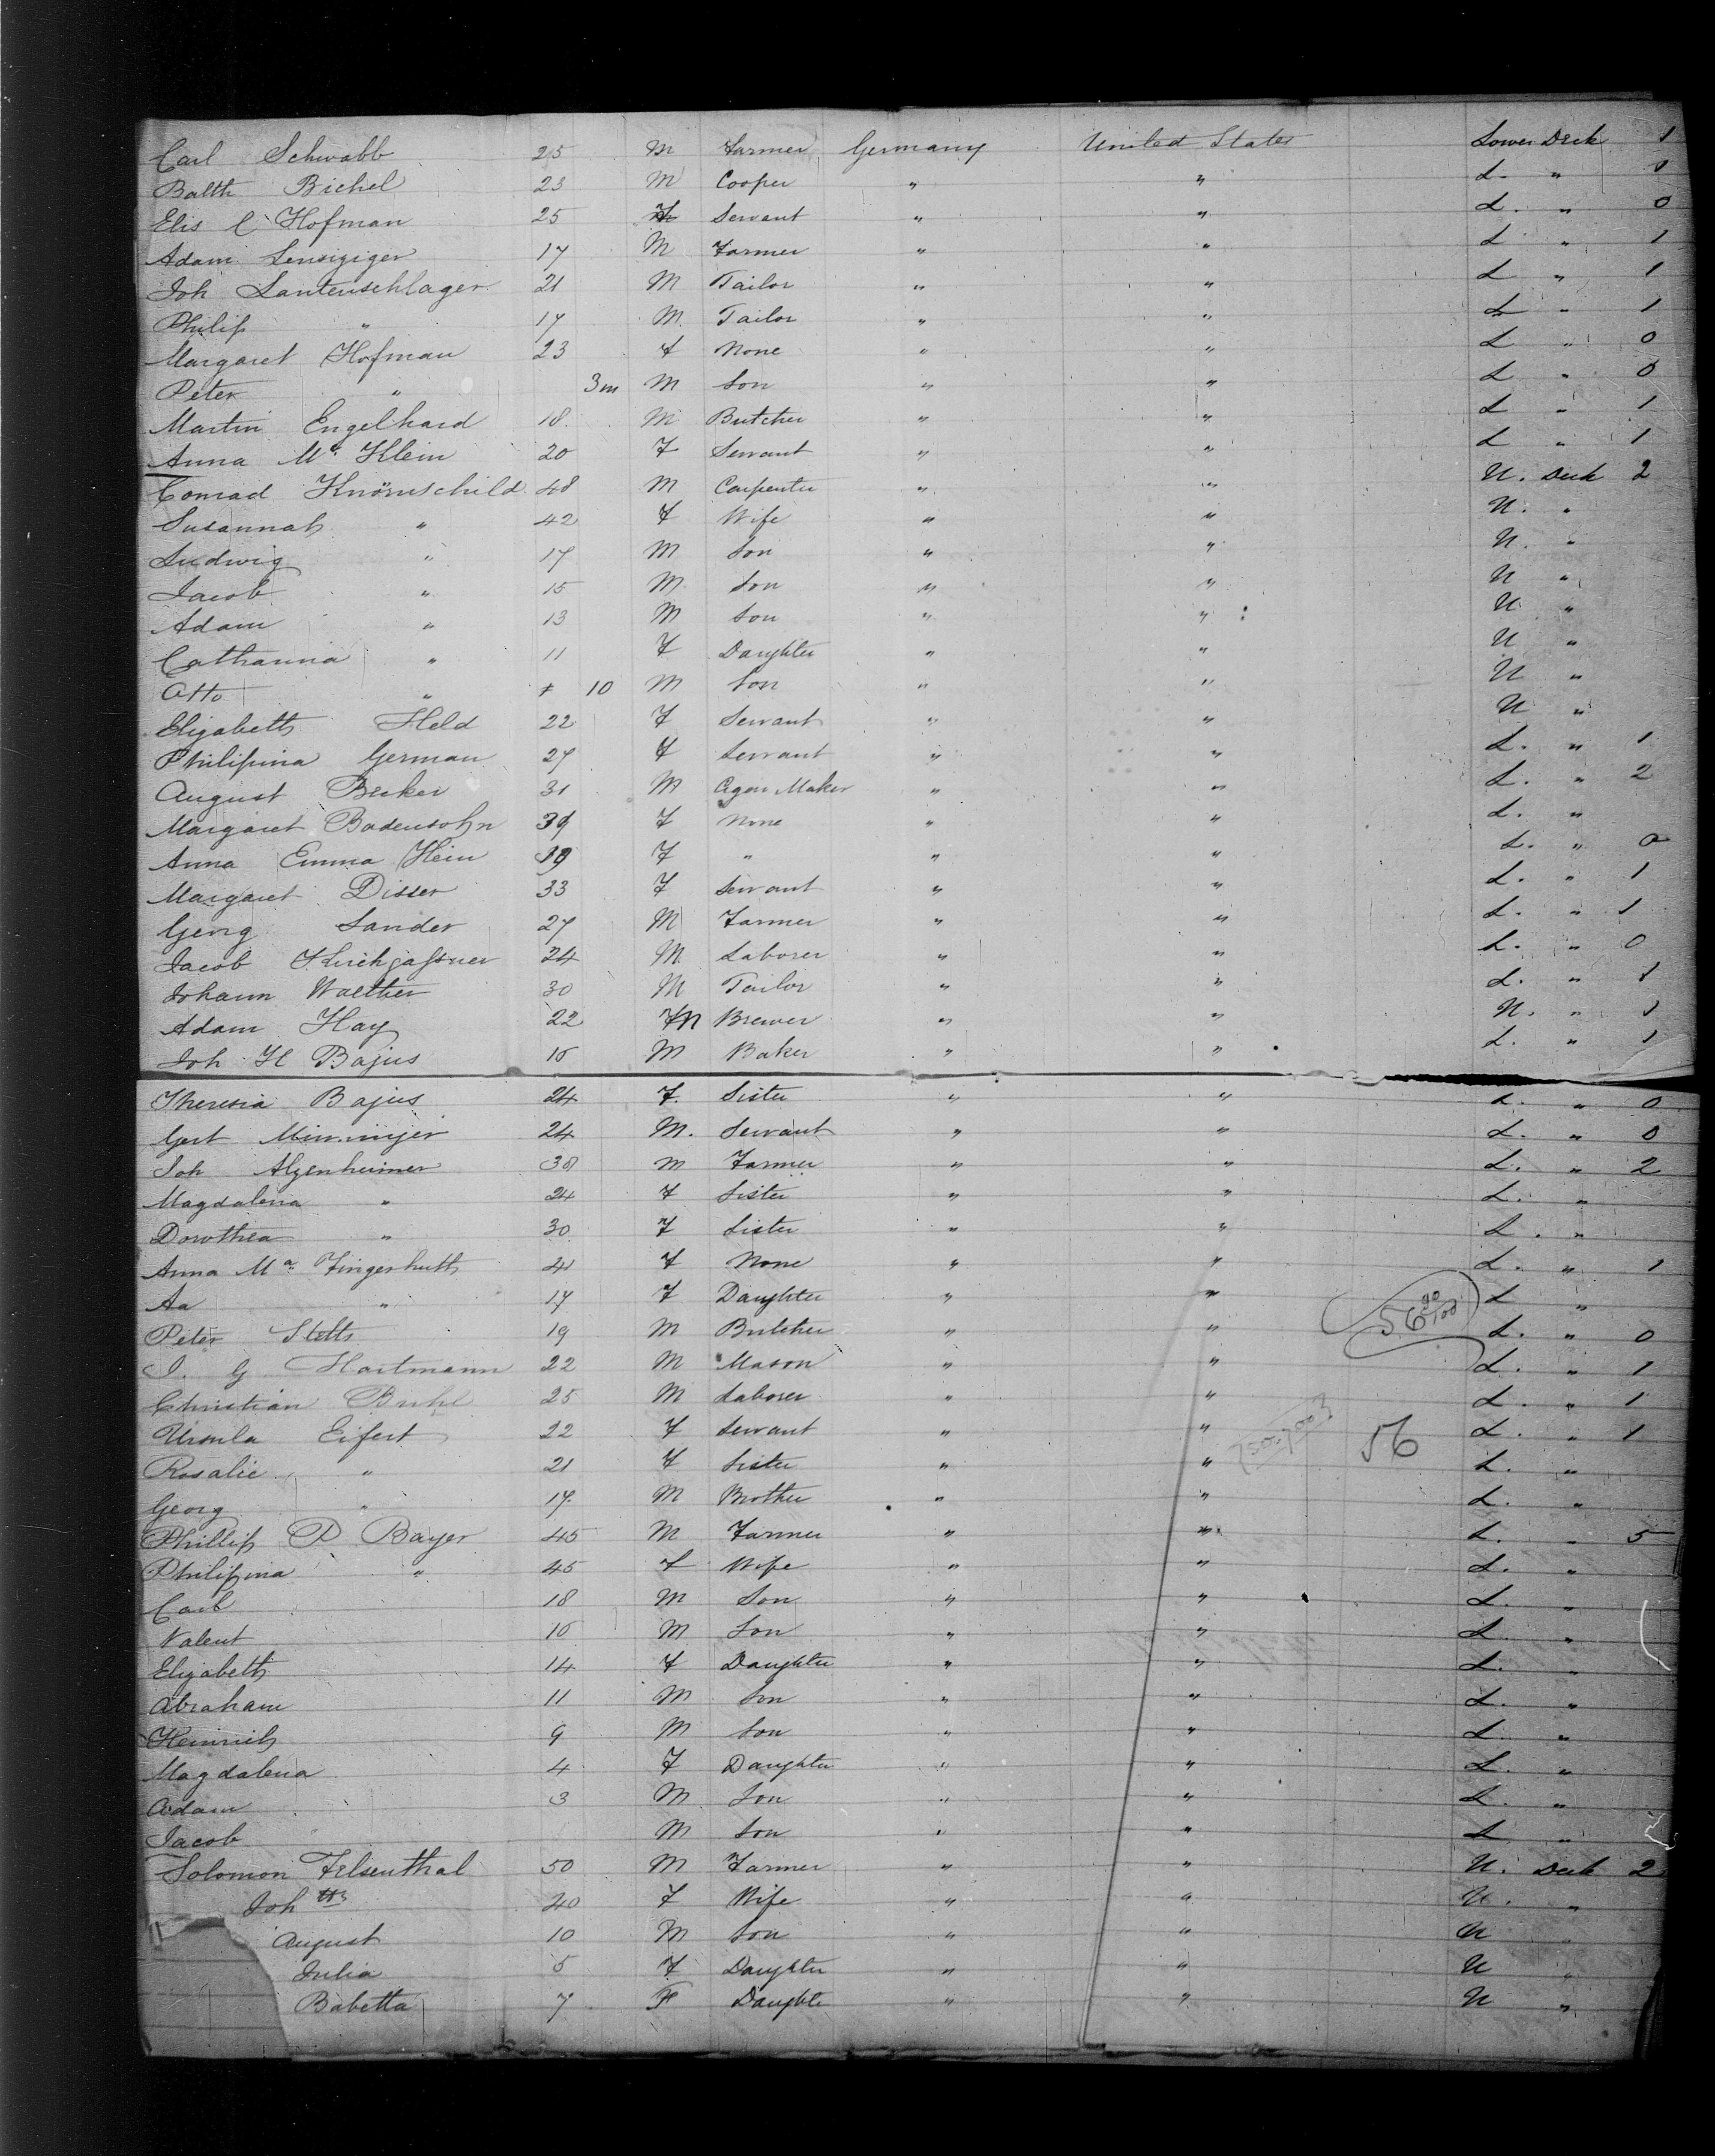 Carl Schwabb 25 M Farmer Germany United States Lower Deck 1
Balth Bichel 23 M Cooper " " L. " 0
Elis C Hofman 25 F Servant " " L. " 0
Adam 17 M Farmer " " L " 1
Joh Lautenschlager 21 M Tailor " " L " 1
Philip " 17 M. Tailor " " L " 1
Margaret Hofman 23 F None " " L " 0
Peter " 3m M Son " " L " 0
Martin Engelhard 18. M Butcher " " L " 1
Anna Ma Klein 20 F Servant " " L " 1
Conrad Knörnschild 48 M Carpenter " " U. Deck 2
Susannah " 42 F Wife " " U. "
Ludwig " 17 M Son " " U. "
Jacob " 15 M Son " " U "
Adam " 13 M Son " " U "
Catharina " 11 F Daughter " " U "
Otto " 10 M Son " " U "
Elizabeth Held 22 F Servant " " U "
Philipina German 27 F Servant " " L. " 1
August Becker 31 M Maker " " L. " 2
Margaret Badensohn 39 F None " " L. "
Anna Emma Hein F " " " L. " 0
Margaret Disser 33 F Servant " " L. " 1
Georg Sander 27 M Farmer " " L. " 1
Jacob 24 M Laborer " " L. " 0
Johann Walther 30 M Tailor " " L. " 1
Adam Hay 22 M Brewer " " U. " 1
Joh H Bajus 16 M Baker " " L. " 1
Theresia Bajus 24 F. Sister " " L. " 0
Gert 24 M. Servant " " L. " 0
Joh Alzenheimer 38 M Farmer " " L. " 2
Magdalena " 24 F Sister " " L. "
Dorothea " 30 F Sister " " L. "
Anna Ma Fingerhuth 41 F None " " L. " 1
Aa " 17 F Daughter " " L "
56 90/100
Peter Stetts 19 M Butcher " " L. " 0
J. G Hartmann 22 M Mason " " L. " 1
Christian Buhl 25 M Laborer " " L. " 1
Ursula Eifert 22 F Servant " " 56 L. " 1
Rosalie " 21 F Sister " " L. "
Georg " 17. M Brother " " L. "
Phillip P Bayer 45 M Farmer " " L. " 5
Philipina " 45 F Wife " " L. "
Carl 18 M Son " " L. "
Valent 16 M Son " " L. "
Elizabeth 14 F Daughter " " L. "
Abraham 11 M Son " " L. "
Heinrich 9 M Son " " L. "
Magdalena 4 F Daughter " " L. "
Adam 3 M Son " " L. "
Jacob M Son " " L "
Solomon Felsenthal 50 M Farmer " " U. Deck 2
Joh 40 F Wife " " U. "
August 10 M Son " " U "
Julia 5 F Daughter " " U "
Babetta 7 F Daughte " " U "